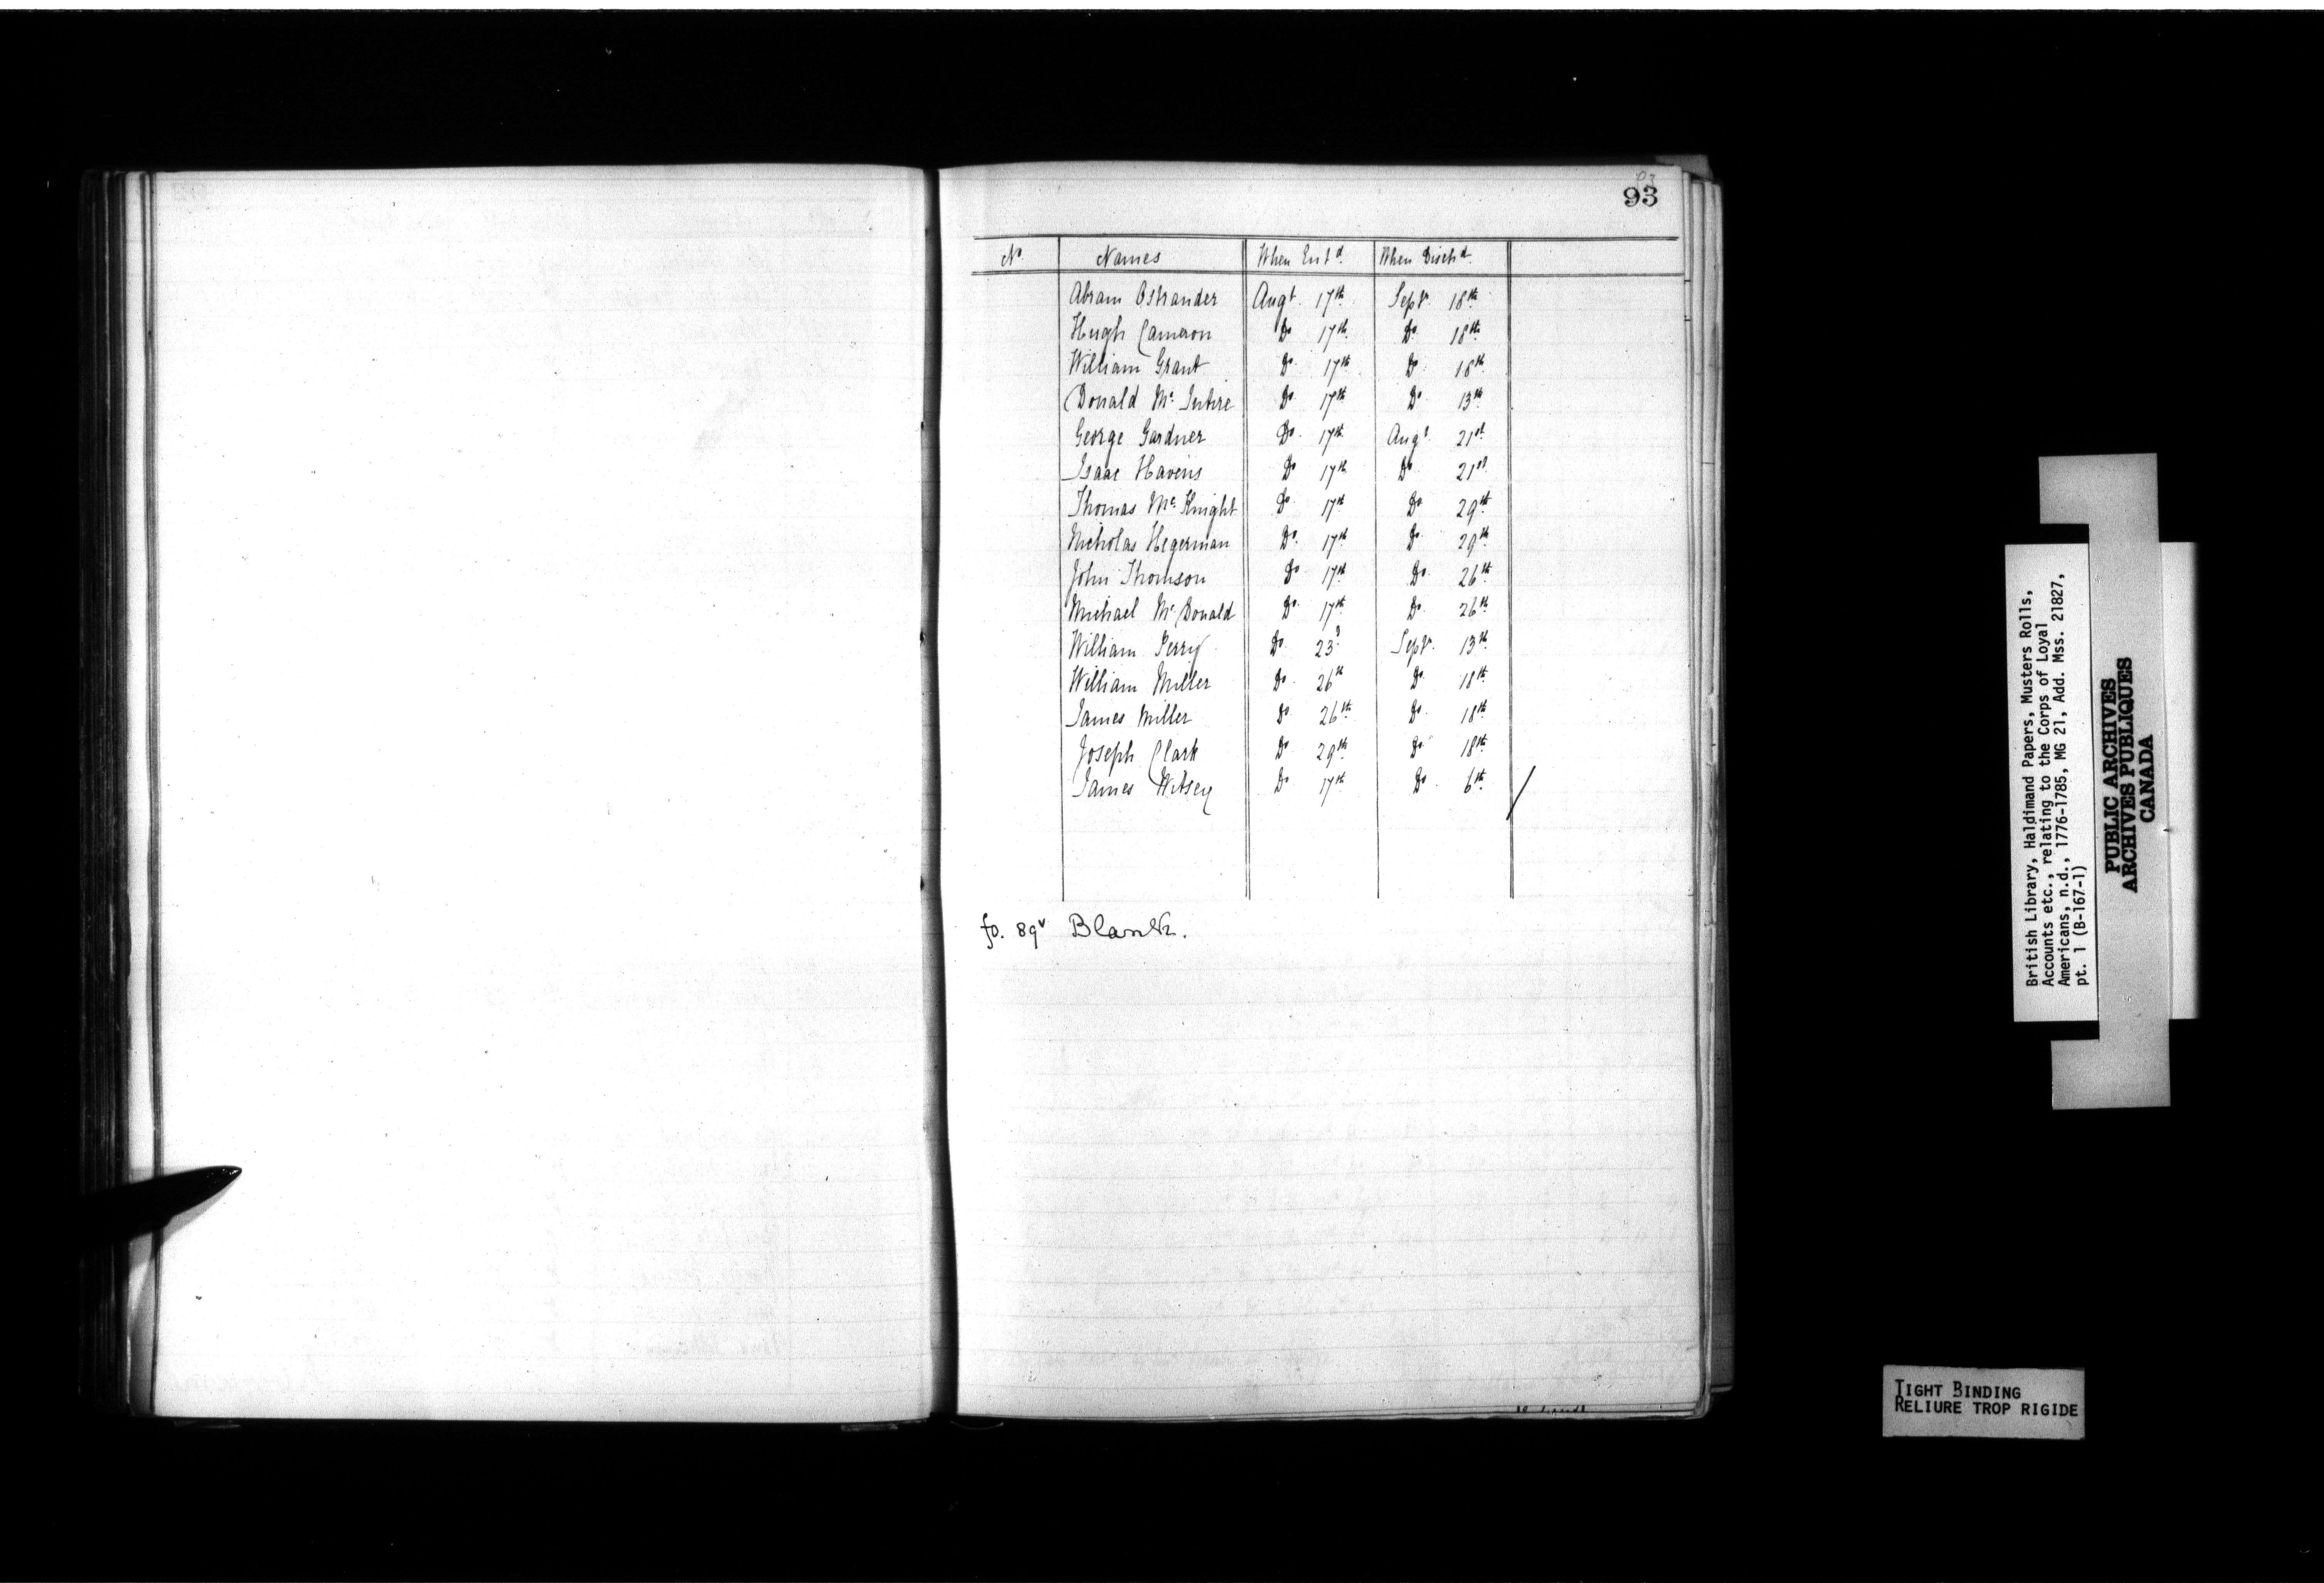 93
No. Names When Ent.d When Disch.d
Abram Ostrander Augt. 17th Septr. 18th
Hugh Cameron Do 17th Do. 18th
William Grant Do. 17th Do. 18th
Donald Mc. Intire Do. 17th Do. 13th
George Gardner Do. 17th Augt. 21st
Isaac Havens Do 17th Do. 21st
Thomas Mc. Knight Do. 17th Do. 29th
Nicholas Hegerman Do. 17th Do. 29th
John Thomson Do 17th Do. 26th
Michael Mc. Donald Do. 17th Do. 26th
William Perry Do. 23d Septr. 13th
William Miller Do. 26th Do. 18th
James Miller Do. 26th Do. 18th
Joseph Clark Do 29th Do. 18th
James Witsey Do 17th Do. 6th
fo. 89v Blank.
British Library, Haldimand Papers, Musters Rolls,
Accounts etc., relating to the Corps of Loyal
Americans, n.d., 1776-1785, MG 21, Add. Mss. 21827,
pt. 1 (B-167-1)
PUBLIC ARCHIVES
ARCHIVES PUBLIQUES
CANADA
TIGHT BINDING
RELIURE TROP RIGIDE